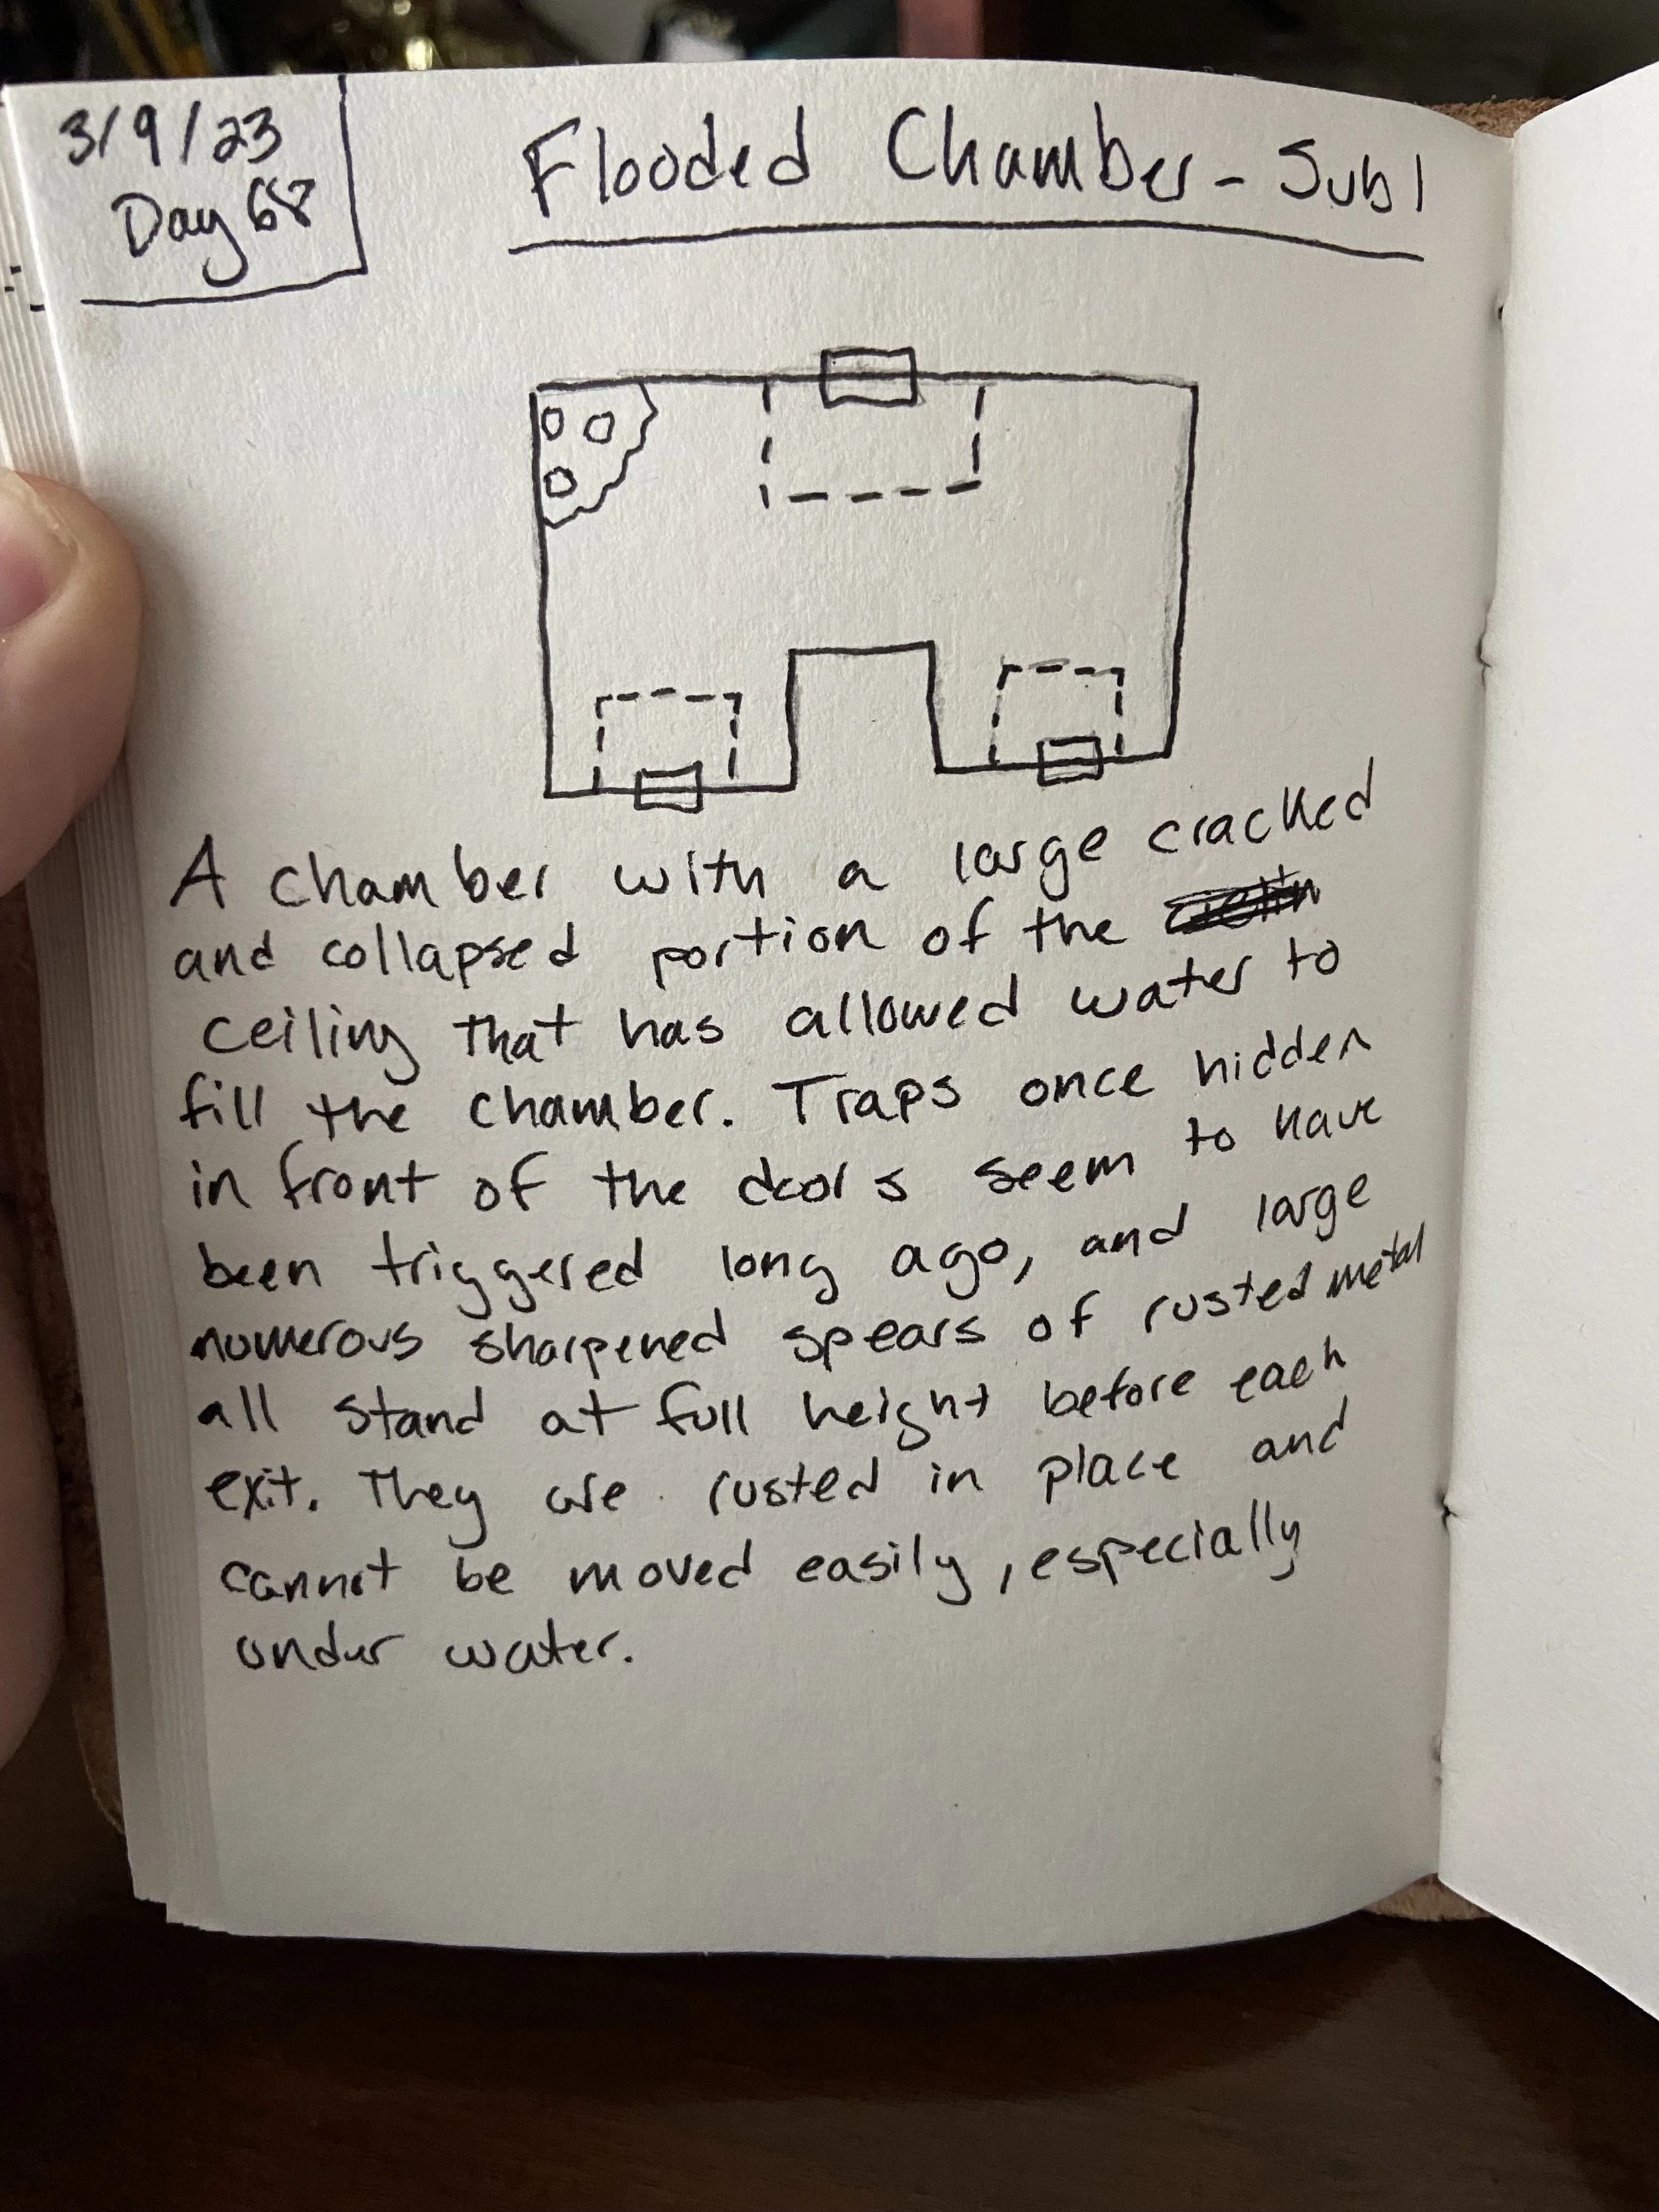 3/9/23
Day 68
Flooded Chamber - Sub 1
A chamber with a large cracked
and collapsed portion of the
ceiling that has allowed water to
fill the chamber. Traps once hidden
in front of the doors seem to have
been triggered long ago, and large
numerous sharpened spears of rusted metal
all stand at full height before each
exit. They are rusted in place and
cannot be moved easily, especially
under water.